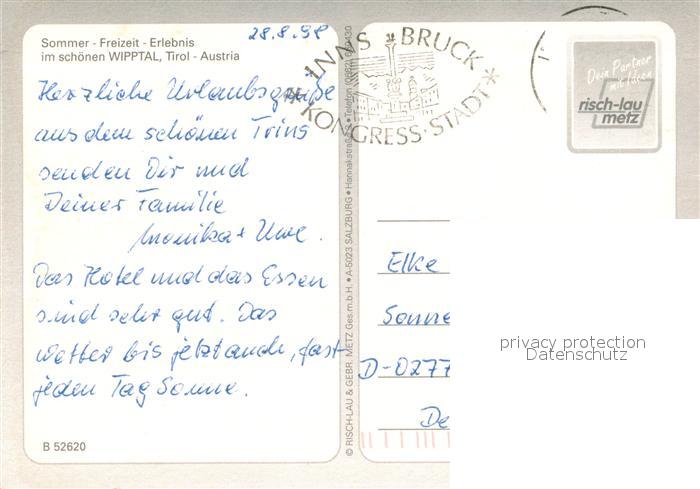 28.8.98
Sommer - Freizeit - Erlebnis
im schönen WIPPTAL, Tirol - Austria
Herzliche Urlaubsgrüße
aus dem schönen Trins
senden Dir und
Deiner Familie
Monika + Uwe.
Das Hotel und das Essen
sind sehr gut. Das
Wetter bis jetzt auch, fast
jeden Tag Sonne.
B 52620
© RISCH-LAU & GEBR. METZ Ges.m.b.H. • A-5023 SALZBURG • Telefon
INNSBRUCK
* KONGRESS-STADT *
Dein Partner
mit Ideen
risch-lau
metz
Elke
Sonne
D-0277
De
privacy protection
Datenschutz